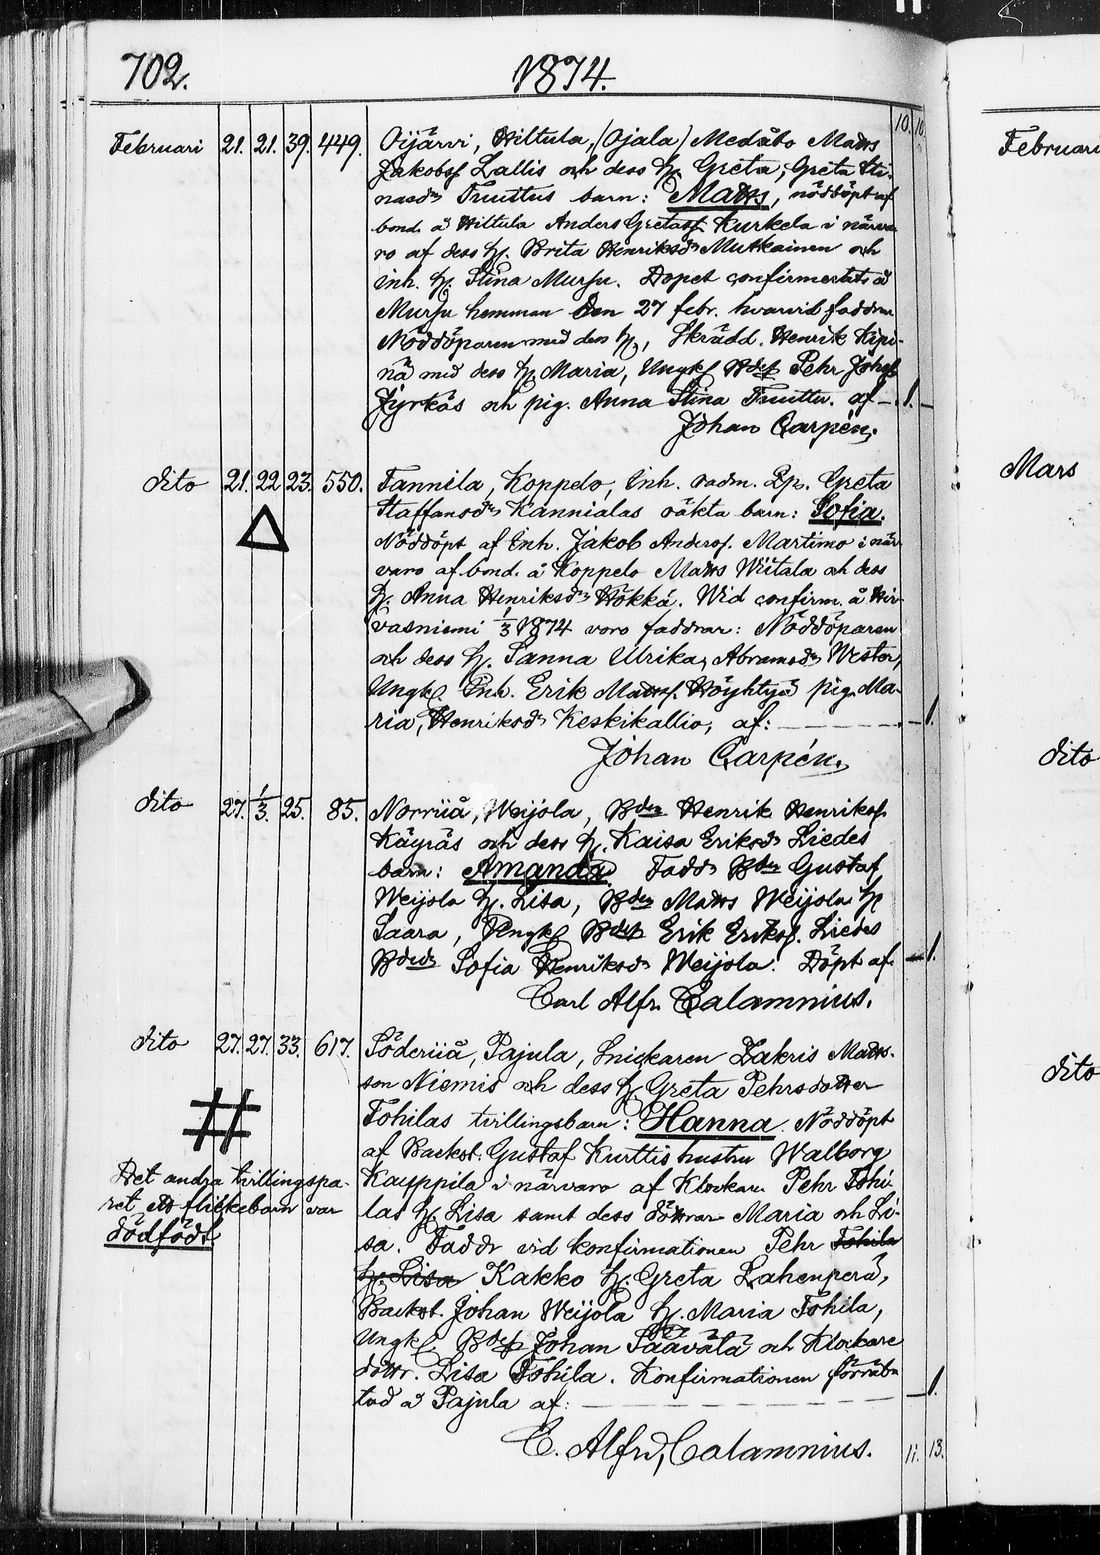 702.
1874.
10. 10.
Februari 21. 21. 39. 449. Oijärvi, Hiltula, (Ojala) Medåbo Matts
Jakobss. Lallis och dess h. Greta, Greta Sti-
nasdr Truttus barn: Matts, nöddöpt af
bond. å Hiltula Anders Gretass. Kurkela i närva-
ro af dess h. Brita Henriksdr Mutkainen och
inh. h. Stina Mursu. Dopet confirmerats å
Mursu hemman den 27 febr. hvarvid faddrar
Nöddöparen med dess h., Skrädd. Henrik Kipi-
nä med dess h. Maria, Ungk. Bdes. Pehr Johs.
Jyrkäs och pig. Anna Stina Truttu. af – 1. –
Johan Carpén.
dito 21. 22 23. 550. Tannila, Koppelo, Inh. vadm. Lp. Greta
Staffansdr Kannialas oäkta barn: Sofia.
Nöddöpt af Inh. Jakob Anderss. Martimo i när-
varo af bond. å Koppelo Matts Wiitala och dess
h. Anna Henriksdr Hökkä. Wid confirm. å Hir-
vasniemi 1/3 1874 voro faddrar: Nöddöparen
och dess h. Sanna Ulrika, Abramsdr Wester,
Ungk. Inh. Erik Mattss. Höyhtyä pig. Ma-
ria, Henriksdr Keskikallio, af: – 1.
Johan Carpén.
dito 27. 1/3. 25. 85. Norriiå, Weijola, Bden Henrik Henrikss.
Käyräs och dess h. Kaisa Eriksdr Liedes
barn: Amanda. Faddr Bden Gustaf
Weijola h. Lisa, Bden Matts Weijola h.
Saara, Ungk. Bdes. Erik Erikss. Liedes
Bdedr Sofia Henriksdr Weijola. Döpt af. – 1.
Carl Alfr. Calamnius.
dito 27. 27. 33. 617. Söderiiå, Pajula, Snickaren Zakris Matts-
son Niemis och dess h. Greta Pehrsdotter
Tohilas tvillingsbarn: Hanna. Nöddöpt
af Backst. Gustaf Kurttis hustru Walborg
Kauppila i närvaro af Klockar. Pehr Tohi-
las h. Lisa samt dess döttrar Maria och Li-
sa. Faddr vid konfirmationen Pehr Tohila
h. Lisa Kakko h. Greta Lahenperä,
Backst. Johan Weijola h. Maria Tohila,
Ungk. Bdes. Johan Säävälä och Klockare
dottr. Lisa Tohila. Konfirmationen förrätta-
tad å Pajula af: – 1.
C. Alfrd, Calamnius.
11. 13.
Det andra tvillingspa-
ret ett flickebarn var
dödfödt
Februari
Mars
dito
dito